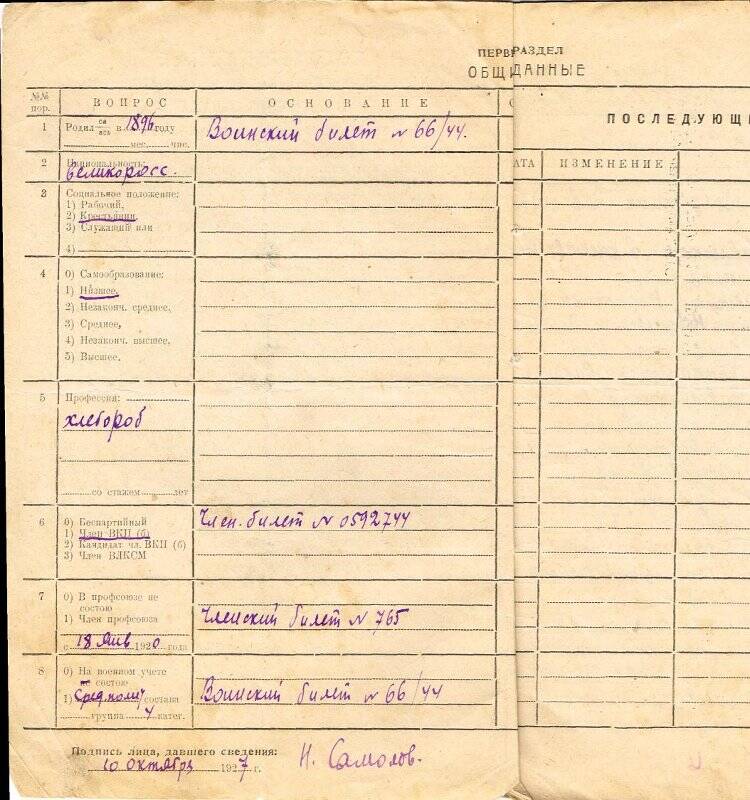 ПЕРВ РАЗДЕЛ
ОБЩ ДАННЫЕ
№№ пор. ВОПРОС ОСНОВАНИЕ
ПОСЛЕДУЮЩИ
АТА ИЗМЕНЕНИЕ
1 Родил ся ась в 1896 году Воинский билет № 66/44.
мес. чис.
2 Национальность:
великоросс.
3 Социальное положение:
1) Рабочий,
2) Крестьянин,
3) Служащий или
4)
4 0) Самообразование:
1) Низшее,
2) Незаконч. среднее,
3) Среднее,
4) Незаконч. высшее,
5) Высшее.
5 Профессия:
хлебороб
со стажем лет
6 0) Беспартийный Член. билет № 0592744
1) Член ВКП (б)
2) Кандидат чл. ВКП (б)
3) Член ВЛКСМ
7 0) В профсоюзе не
состою
1) Член профсоюза Членский билет № 765
с 18 Янв 1920 года
8 0) На военном учете
не состою
1) Сред. состава Воинский билет № 66/44
группа 4 катег.
Подпись лица, давшего сведения:
10 октября 1927 г. Н. Самолов.